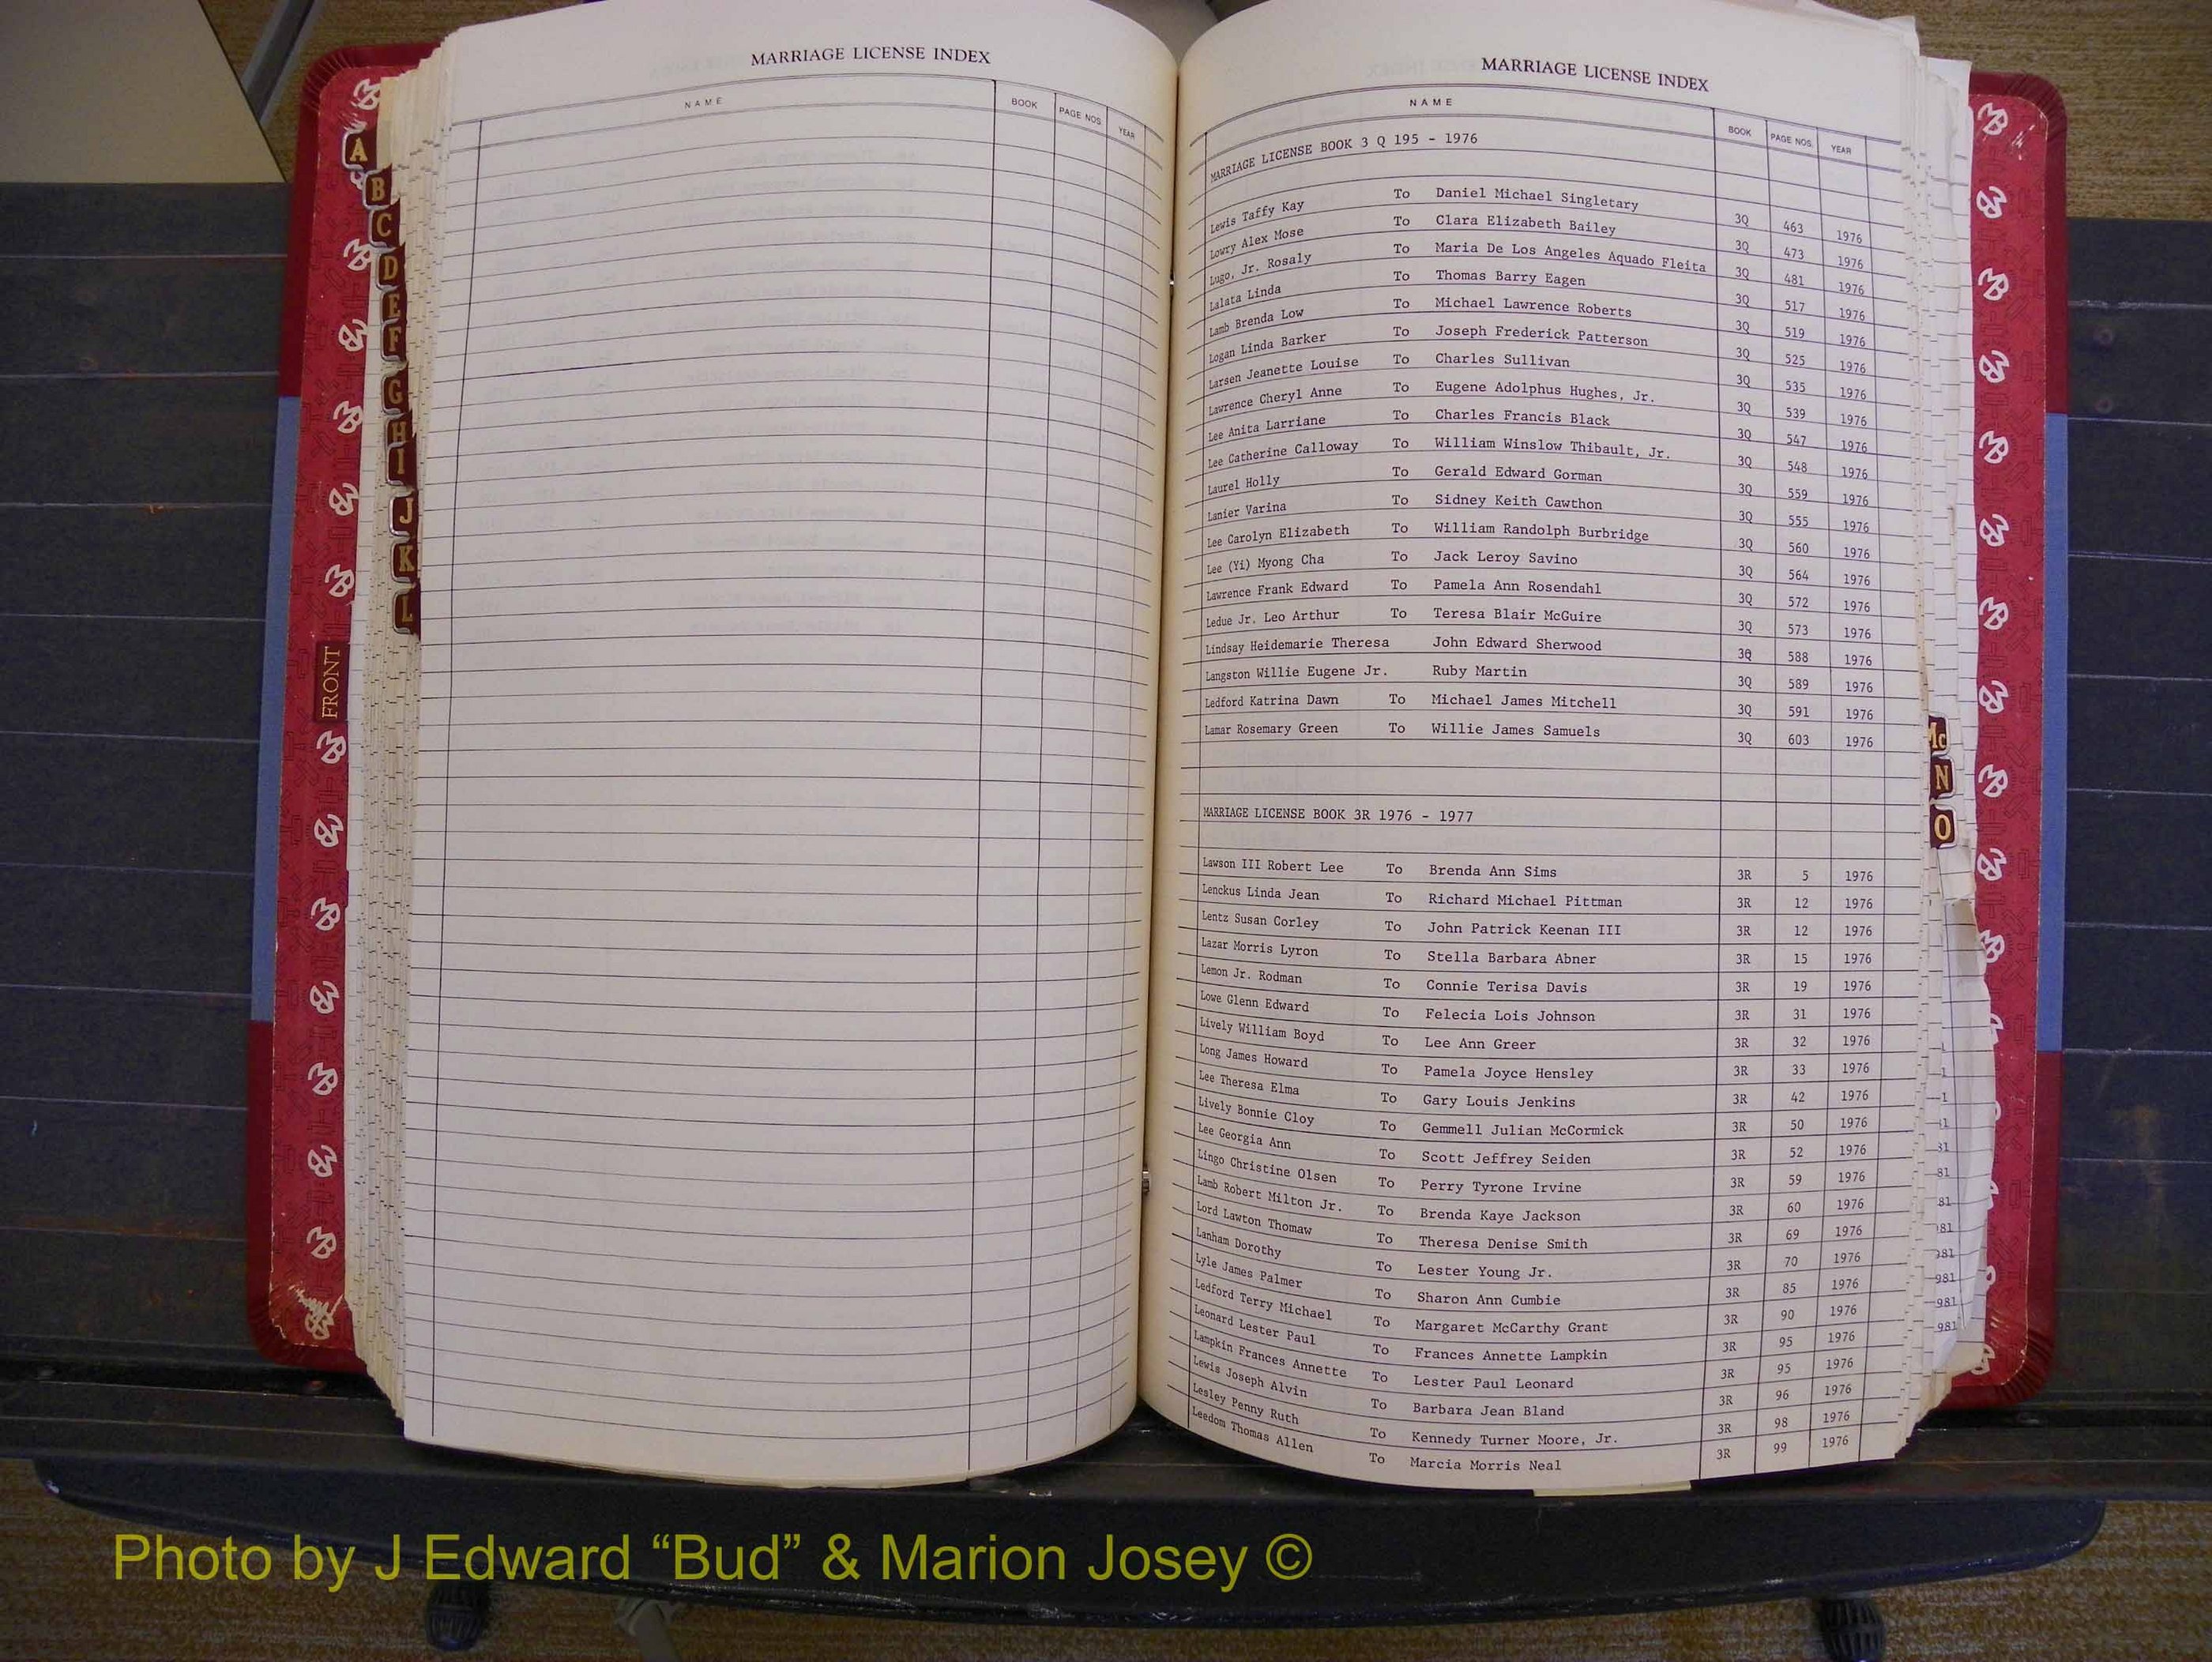 MARRIAGE LICENSE INDEX
NAME BOOK PAGE NOS. YEAR
A
B
C
D
E
F
G
H
I
J
K
L
FRONT
MARRIAGE LICENSE INDEX
NAME BOOK PAGE NOS. YEAR
MARRIAGE LICENSE BOOK 3 Q 195 - 1976
Lewis Taffy Kay To Daniel Michael Singletary 3Q 463 1976
Lowry Alex Mose To Clara Elizabeth Bailey 3Q 473 1976
Lugo, Jr. Rosaly To Maria De Los Angeles Aquado Fleita 3Q 481 1976
Lalata Linda To Thomas Barry Eagen 3Q 517 1976
Lamb Brenda Low To Michael Lawrence Roberts 3Q 519 1976
Logan Linda Barker To Joseph Frederick Patterson 3Q 525 1976
Larsen Jeanette Louise To Charles Sullivan 3Q 535 1976
Lawrence Cheryl Anne To Eugene Adolphus Hughes, Jr. 3Q 539 1976
Lee Anita Larriane To Charles Francis Black 3Q 547 1976
Lee Catherine Calloway To William Winslow Thibault, Jr. 3Q 548 1976
Laurel Holly To Gerald Edward Gorman 3Q 559 1976
Lanier Varina To Sidney Keith Cawthon 3Q 555 1976
Lee Carolyn Elizabeth To William Randolph Burbridge 3Q 560 1976
Lee (Yi) Myong Cha To Jack Leroy Savino 3Q 564 1976
Lawrence Frank Edward To Pamela Ann Rosendahl 3Q 572 1976
Ledue Jr. Leo Arthur To Teresa Blair McGuire 3Q 573 1976
Lindsay Heidemarie Theresa John Edward Sherwood 3Q 588 1976
Langston Willie Eugene Jr. Ruby Martin 3Q 589 1976
Ledford Katrina Dawn To Michael James Mitchell 3Q 591 1976
Lamar Rosemary Green To Willie James Samuels 3Q 603 1976
MARRIAGE LICENSE BOOK 3R 1976 - 1977
Lawson III Robert Lee To Brenda Ann Sims 3R 5 1976
Lenckus Linda Jean To Richard Michael Pittman 3R 12 1976
Lentz Susan Corley To John Patrick Keenan III 3R 12 1976
Lazar Morris Lyron To Stella Barbara Abner 3R 15 1976
Lemon Jr. Rodman To Connie Terisa Davis 3R 19 1976
Lowe Glenn Edward To Felecia Lois Johnson 3R 31 1976
Lively William Boyd To Lee Ann Greer 3R 32 1976
Long James Howard To Pamela Joyce Hensley 3R 33 1976
Lee Theresa Elma To Gary Louis Jenkins 3R 42 1976
Lively Bonnie Cloy To Gemmell Julian McCormick 3R 50 1976
Lee Georgia Ann To Scott Jeffrey Seiden 3R 52 1976
Lingo Christine Olsen To Perry Tyrone Irvine 3R 59 1976
Lamb Robert Milton Jr. To Brenda Kaye Jackson 3R 60 1976
Lord Lawton Thomaw To Theresa Denise Smith 3R 69 1976
Lanham Dorothy To Lester Young Jr. 3R 70 1976
Lyle James Palmer To Sharon Ann Cumbie 3R 85 1976
Ledford Terry Michael To Margaret McCarthy Grant 3R 90 1976
Leonard Lester Paul To Frances Annette Lampkin 3R 95 1976
Lampkin Frances Annette To Lester Paul Leonard 3R 95 1976
Lewis Joseph Alvin To Barbara Jean Bland 3R 96 1976
Lesley Penny Ruth To Kennedy Turner Moore, Jr. 3R 98 1976
Leedom Thomas Allen To Marcia Morris Neal 3R 99 1976
Mc
N
O
81
81
81
981
981
981
Photo by J Edward “Bud” & Marion Josey ©